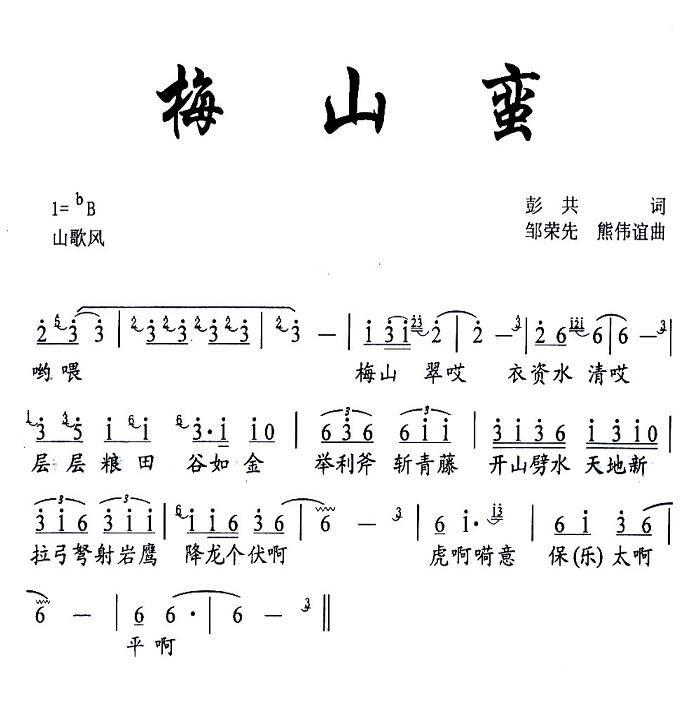 梅山蛮
1=ᵇB
彭共 词
山歌风
邹荣先 熊伟谊曲
哟喂 梅山 翠哎 衣资水 清哎
层层粮田 谷如金 举利斧 斩青藤 开山劈水 天地新
拉弓弩射岩鹰 降龙个伏啊 虎啊嗬意 保(乐)太啊
平啊